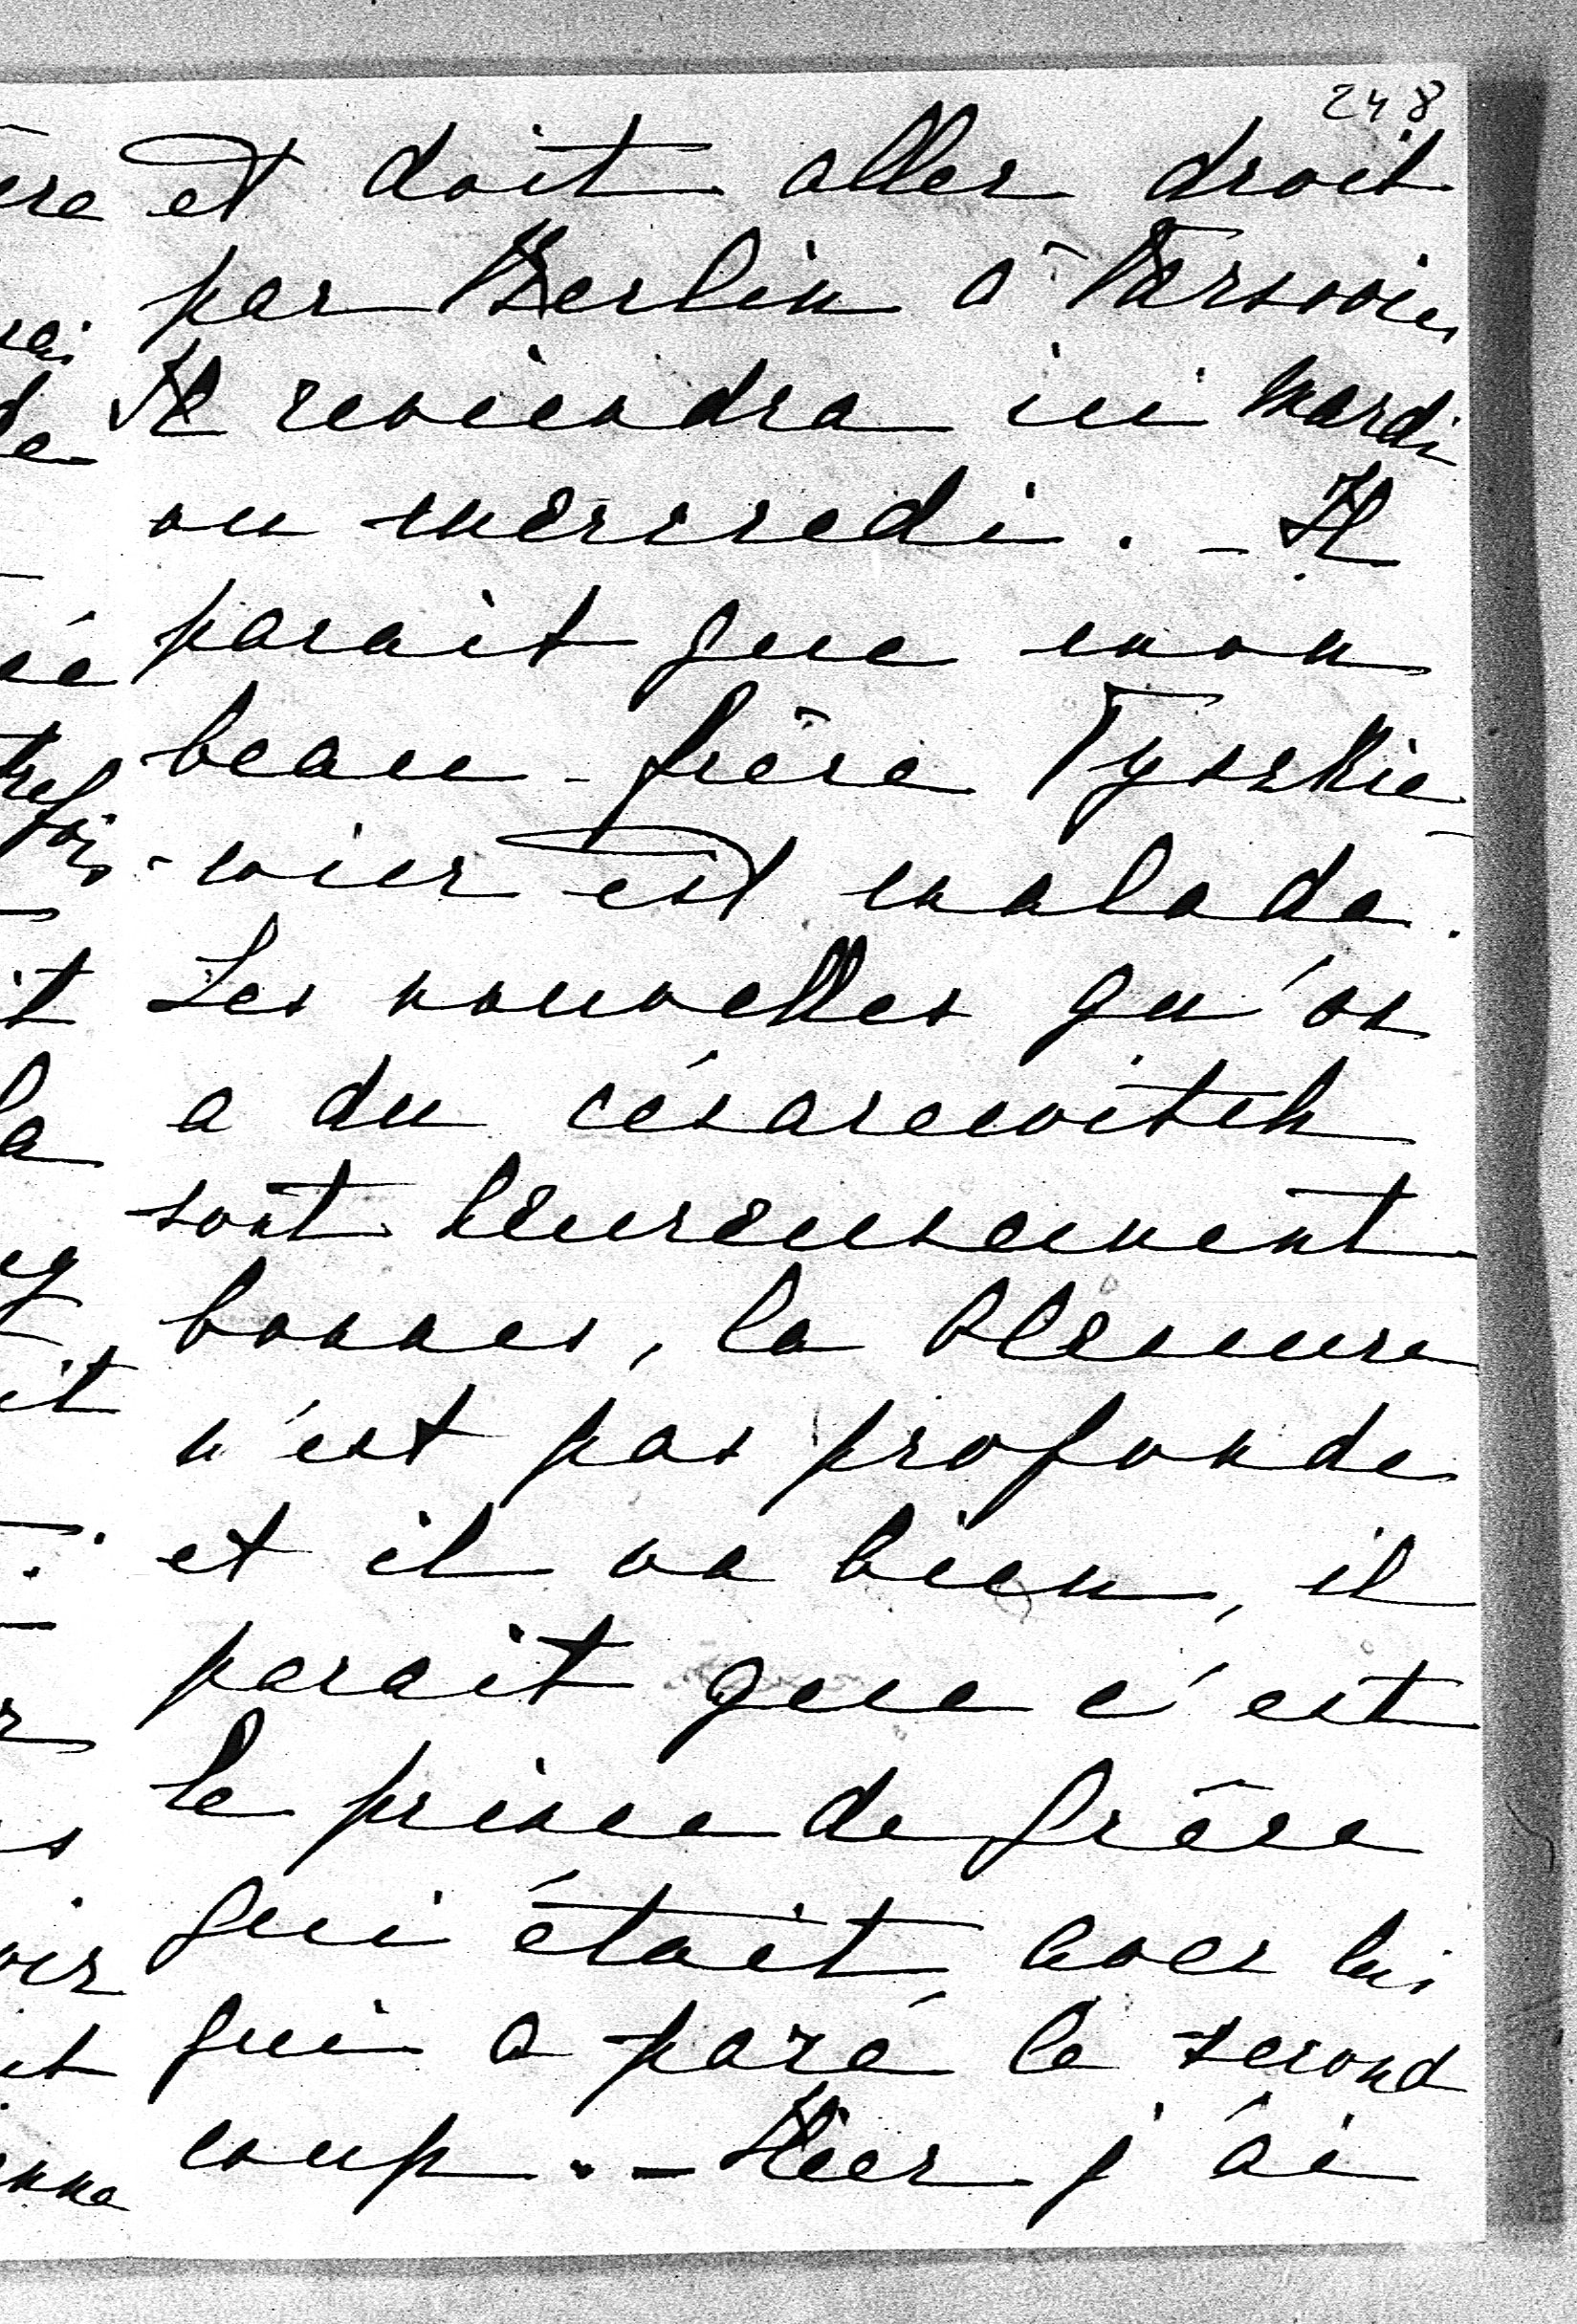 248
et doit aller droit
par Berlin à Varsovie,
Il reviendra ici mardi
ou mercredi. - Il
parait que mon
beau-frère Tyszkie
-wicz est malade.
Les nouvelles qu'on
a du césarewitch
sont heureusement
bonnes, la blessure
n'est pas profonde
et il va bien, il
parait que c'est
le prince de Grèce
qui était avec lui
qui a paré le second
coup. - Hier j'ai